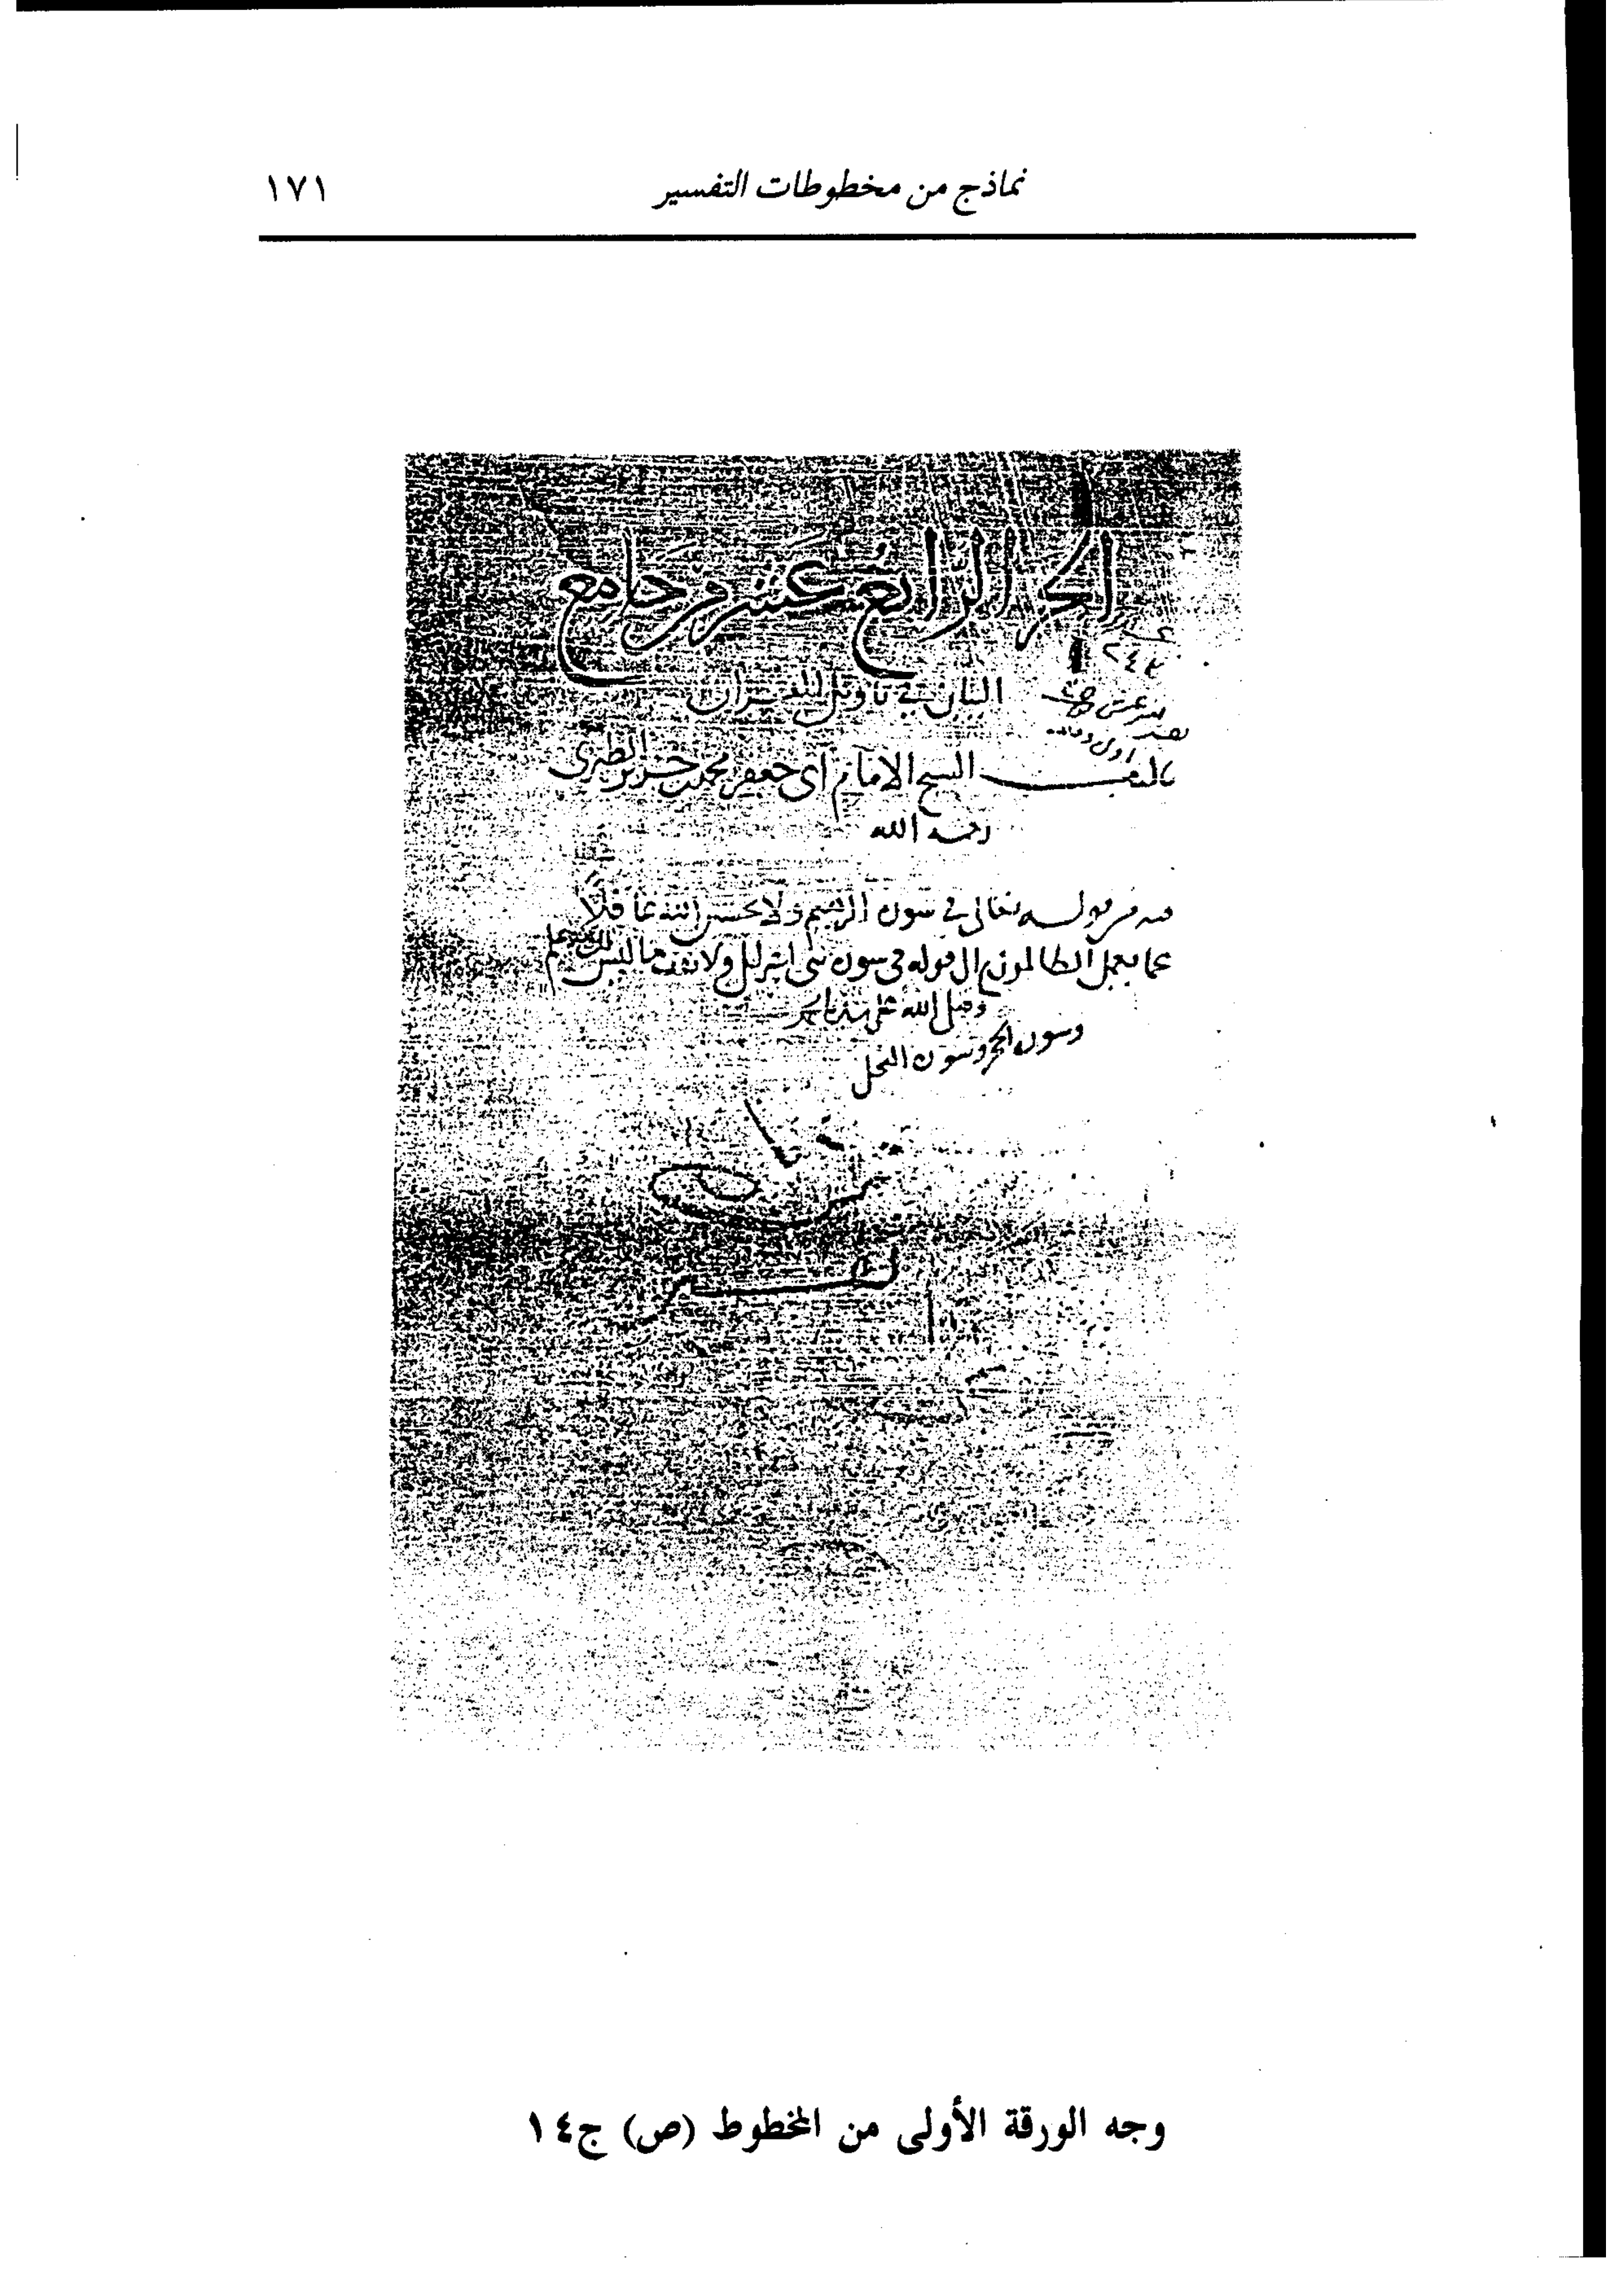 نماذج من مخطوطات التفسير ١٧١
الجز الرابع عشر من جامع
البيان في تاويل القران
٢٤٢
تاليف الشيخ الامام ابى جعفر محمد بن جرير الطبرى
رحمه الله
فيه من قوله تعالى في سورة ابرهيم ولا تحسبن الله غافلا
عما يعمل الظالمون الى قوله فى سورة بنى اسرايل ولا تقف ما ليس لك به علم
وصلى الله على سيدنا محمد
وسورة الحجر وسورة النحل
وجه الورقة الأولى من المخطوط (ص) ج١٤